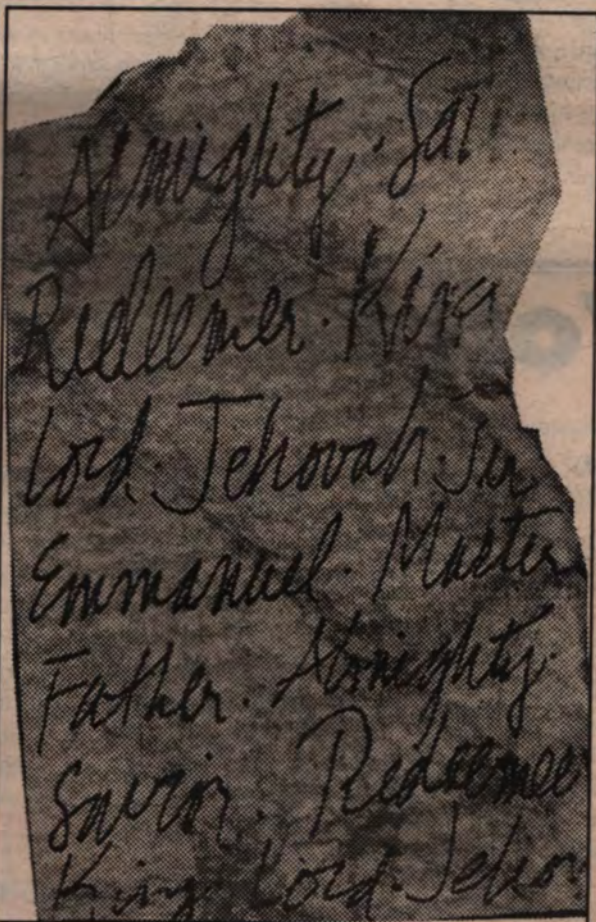 Almighty. Sa
Redeemer. King
Lord. Jehovah.
Emmanuel. Master
Father. Almighty.
Savior. Redeemer
King. Lord. Jehov